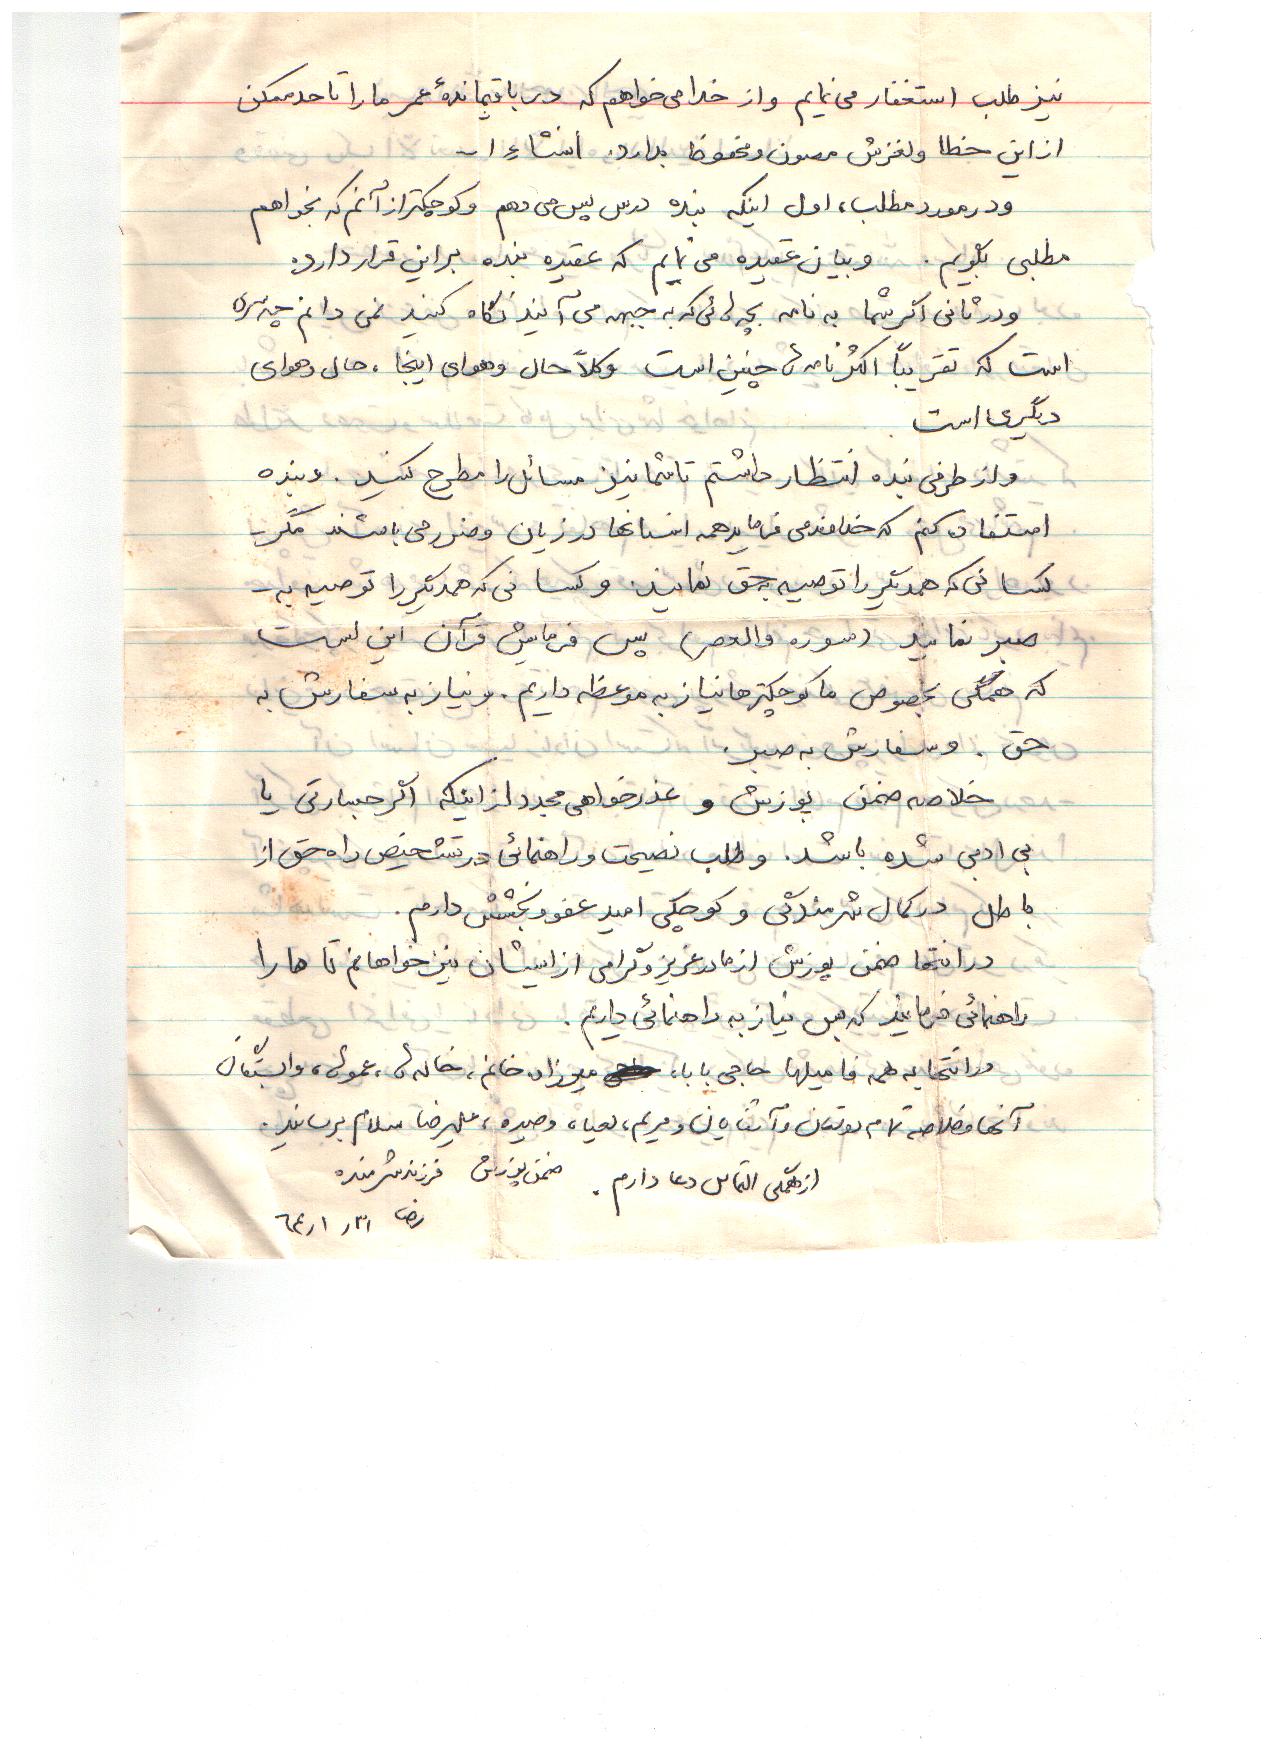 نیز طلب استغفار می نمایم و از خدا می خواهم که در باقیماندهٔ عمر ما را تا حد ممکن
از این خطا و لغزش مصون و محفوظ بدارد. انشاء ا...
و در مورد مطلب، اول اینکه بنده درس پس می دهم و کوچکتر از آنم که بخواهم
مطلبی بگویم. و بیان عقیده می نمایم که عقیده بنده بر این قرار دارد.
و در ثانی اگر شما به نامه بچه هائی که به جبهه می آیند نگاه کنید نمی دانم چه سری
است که تقریباً اکثر نامه ها چنین است و کلاً حال و هوای اینجا، حال و هوای
دیگری است
و از طرفی بنده انتظار داشتم تا شما نیز مسائل را مطرح کنید. و بنده
استفاده کنم که خداوند می فرماید همه انسانها در زیان و ضرر می باشند مگر
کسانی که همدیگر را توصیه به حق نمایند. و کسانی که همدیگر را توصیه به
صبر نمایند (سوره والعصر) پس فرمایش قرآن این است
که همگی بخصوص ما کوچکترها نیاز به موعظه داریم. و نیاز به سفارش به
حق. و سفارش به صبر.
خلاصه ضمن پوزش و عذرخواهی مجدد از اینکه اگر جسارتی یا
بی ادبی شده باشد. و طلب نصیحت و راهنمائی در تشخیص راه حق از
باطل در کمال شرمندگی و کوچکی امید عفو و بخشش دارم.
در انتها ضمن پوزش از مادر عزیز و گرامی از ایشان نیز خواهانم تا ما را
راهنمائی فرمایند که بس نیاز به راهنمائی داریم.
در انتها به همه فامیلها حاجی بابا، میرزاده خانم، خاله ها، عموها، وابستگان
آنها و خلاصه تمام دوستان و آشنایان و مریم، علیرضا سلام برسانید.
از همگی التماس دعا دارم. ضمن پوزش فرزند شرمنده
رضا ۶۴/۱/۳۱